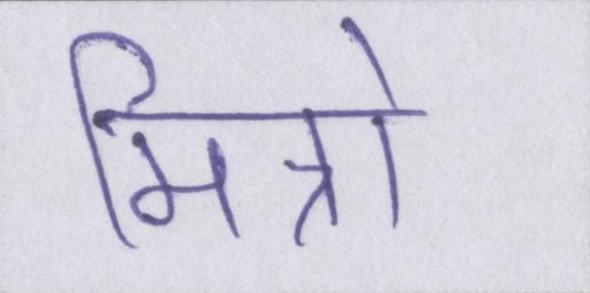 मित्रो